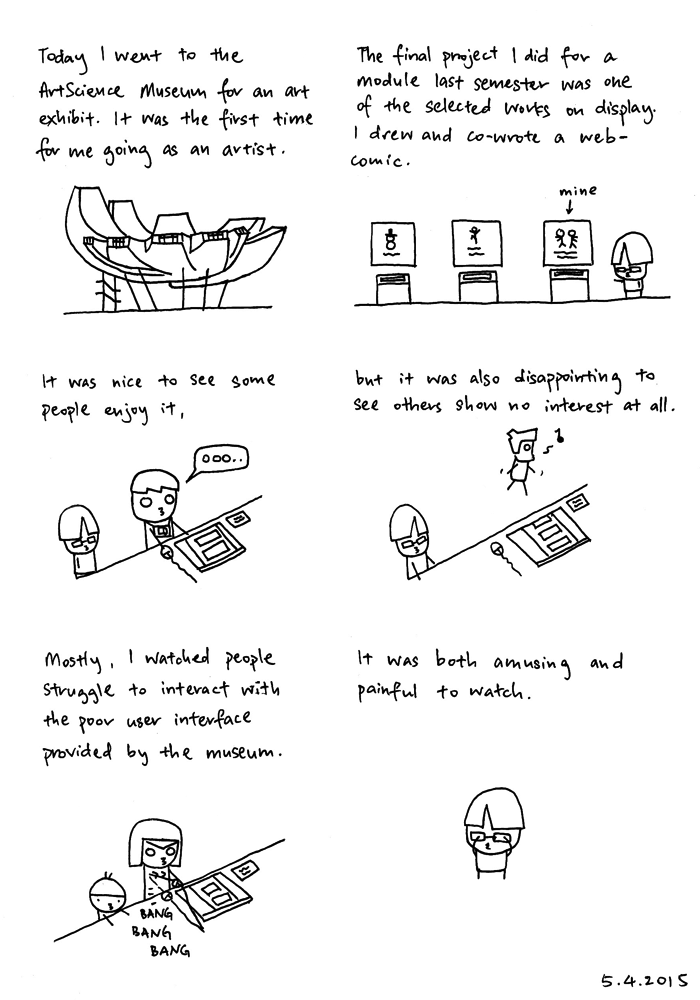 Today I went to the
ArtScience Museum for an art
exhibit. It was the first time
for me going as an artist.
The final project I did for a
module last semester was one
of the selected works on display.
I drew and co-wrote a web-
comic.
mine
It was nice to see some
people enjoy it,
ooo..
but it was also disappointing to
see others show no interest at all.
Mostly, I watched people
struggle to interact with
the poor user interface
provided by the museum.
BANG
BANG
BANG
It was both amusing and
painful to watch.
5.4.2015